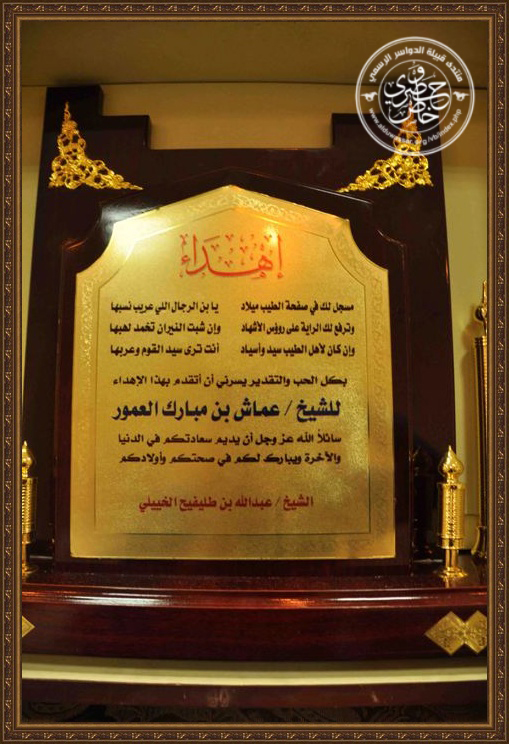 منتدى قبيلة الدواسر الرسمي
إهداء
مسجل لك في صفحة الطيب ميلاد يا بن الرجال اللي عريب نسبها
وترفع لك الراية على رؤوس الأشهاد وإن شبت النيران تخمد لهبها
وإن كان لأهل الطيب سيد وأسياد أنت ترى سيد القوم وعربها
بكل الحب والتقدير يسرني أن أتقدم بهذا الإهداء
للشيخ / عماش بن مبارك العمور
سائلاً الله عز وجل أن يديم سعادتكم في الدنيا
والآخرة ويبارك لكم في صحتكم وأولادكم
الشيخ / عبدالله بن طليفيح الخييلي